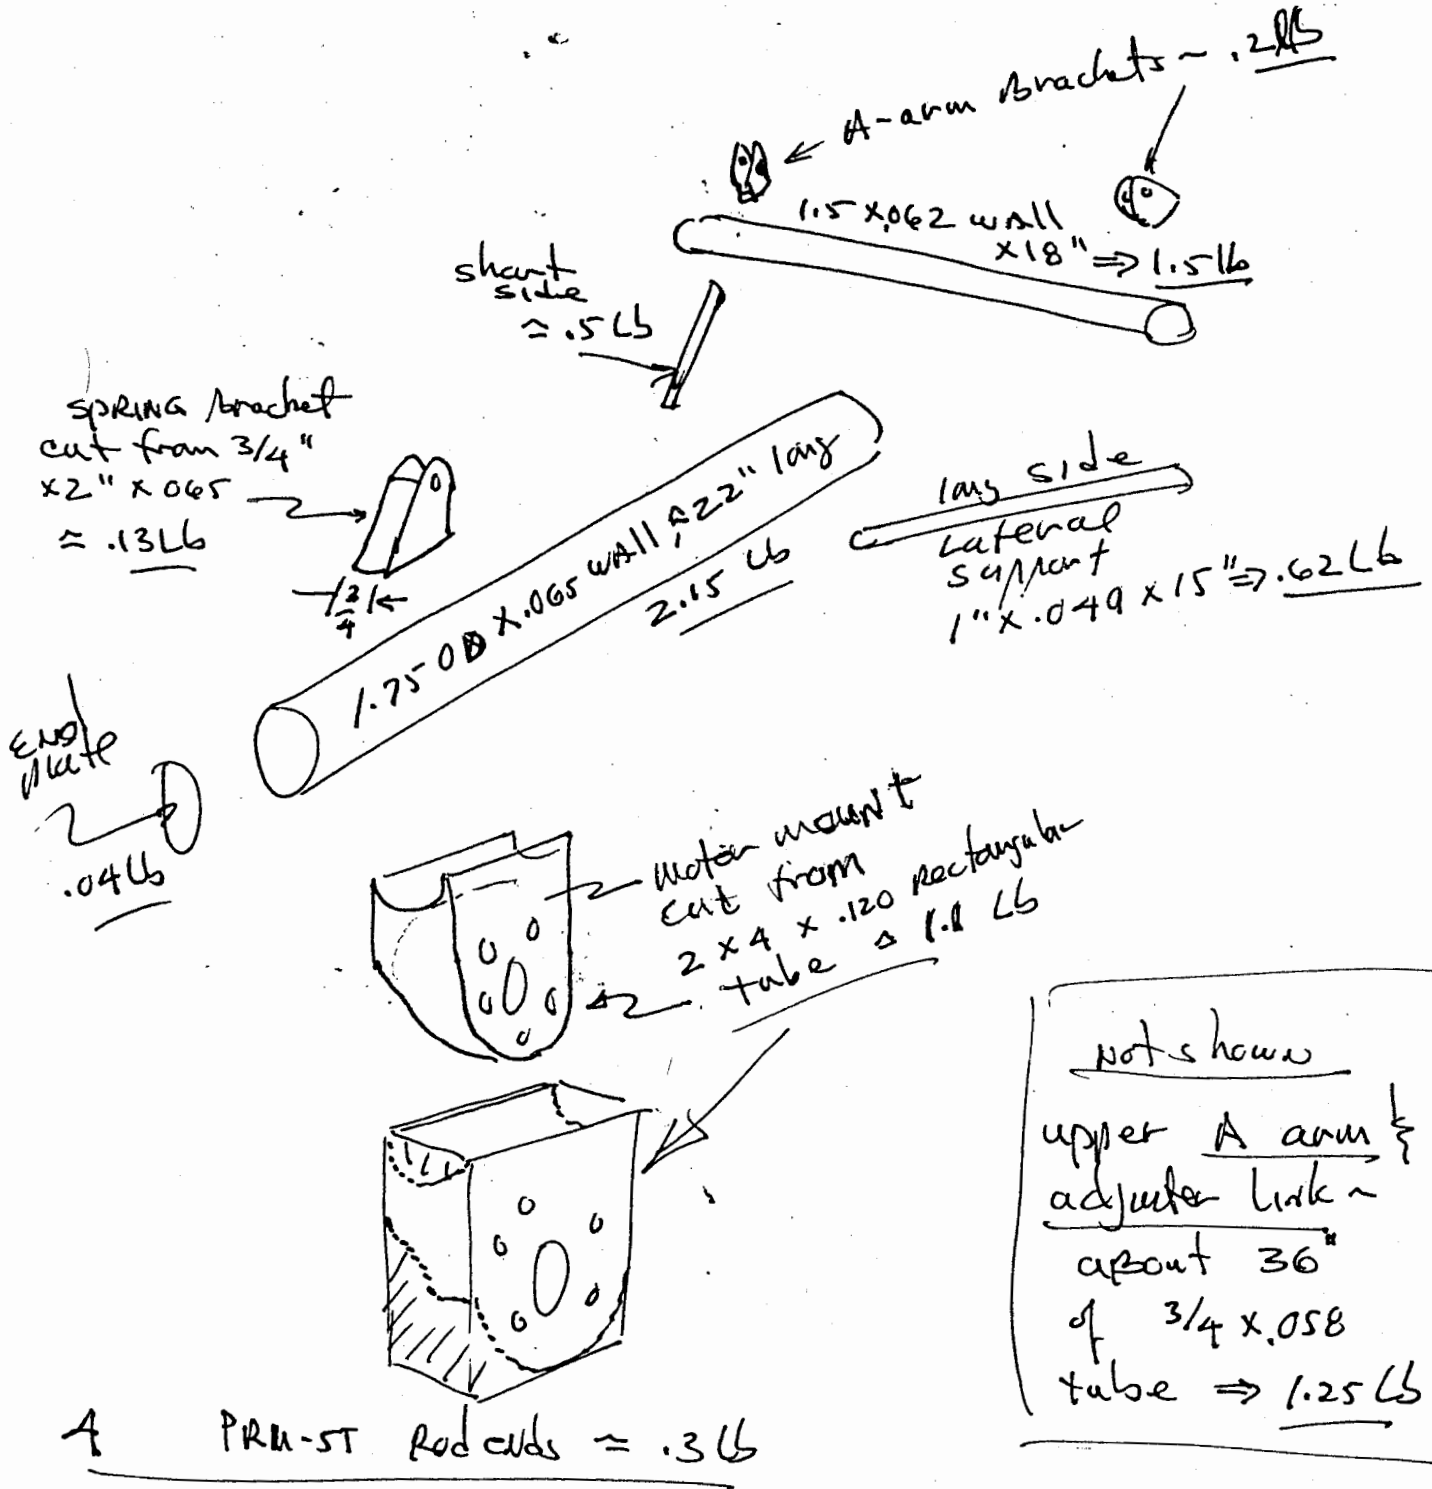 A-arm Brackets ~ .2lb
1.5 x.062 wall
x18" ⇒ 1.5 lb
short
side
≈ .5 Lb
SPRING bracket
cut from 3/4"
x2" x 065
≈ .13Lb
3/4
1.75 OD x.065 wall ≈22" long
2.15 Lb
long side
Lateral
support
1" x .049 x 15" ⇒ .62 Lb
END
plate
.04 Lb
motor mount
cut from
2 x 4 x .120 Rectangular
tube ≈ 1.1 Lb
Not shown
upper A arm &
adjuster Link ~
about 36"
of 3/4 x.058
tube ⇒ 1.25 Lb
4 PRM-5T Rod ends ≈ .3 Lb